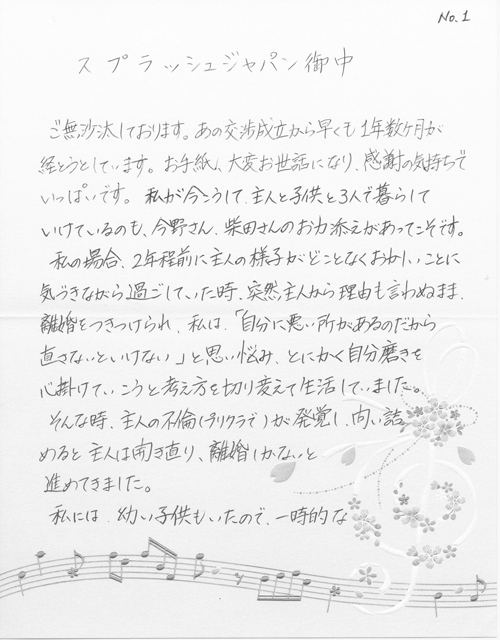 No.1
スプラッシュジャパン御中
ご無沙汰しております。あの交渉成立から早くも1年数ヶ月が
経とうとしています。お手紙、大変お世話になり、感謝の気持ちで
いっぱいです。私が今こうして、主人と子供と3人で暮らして
いけているのも、今野さん、柴田さんのお力添えがあってこそです。
私の場合、2年程前に主人の様子がどことなくおかしいことに
気づきながら過ごしていた時、突然主人から理由も言わぬまま、
離婚をつきつけられ、私は、「自分に悪い所があるのだから
直さないといけない」と思い悩み、とにかく自分磨きを
心掛けていこうと考え方を切り変えて生活していました。
そんな時、主人の不倫(プリクラで)が発覚し、問い詰
めると主人は開き直り、離婚しかないと
進めてきました。
私には、幼い子供もいたので、一時的な